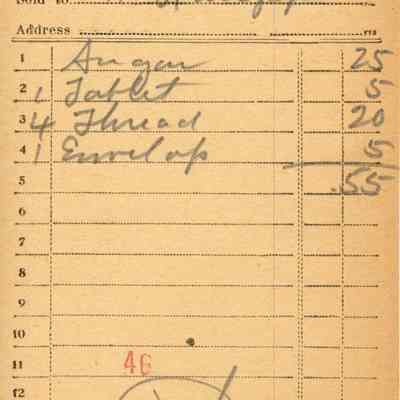 Sold to
Address
1 Sugar 25
2 1 Tablet 5
3 4 Thread 20
4 1 Envelop 5
5 .55
6
7
8
9
10
11 46
12